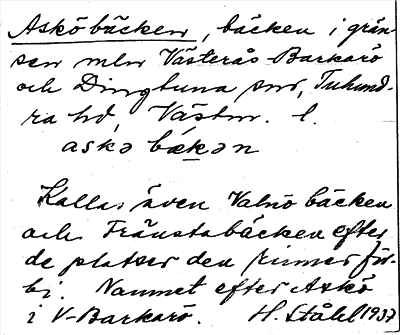 Asköbäcken, bäcken i grän-
sen mln Västerås-Barkarö
och Dingtuna snr, Tuhund-
ra hd, Västm. l.
askə bækən
Kallas även Valnö bäcken
och Fränstabäcken efter
de platser den rinner för-
bi. Namnet efter Askö
i V-Barkarö. H. Ståhl 1937